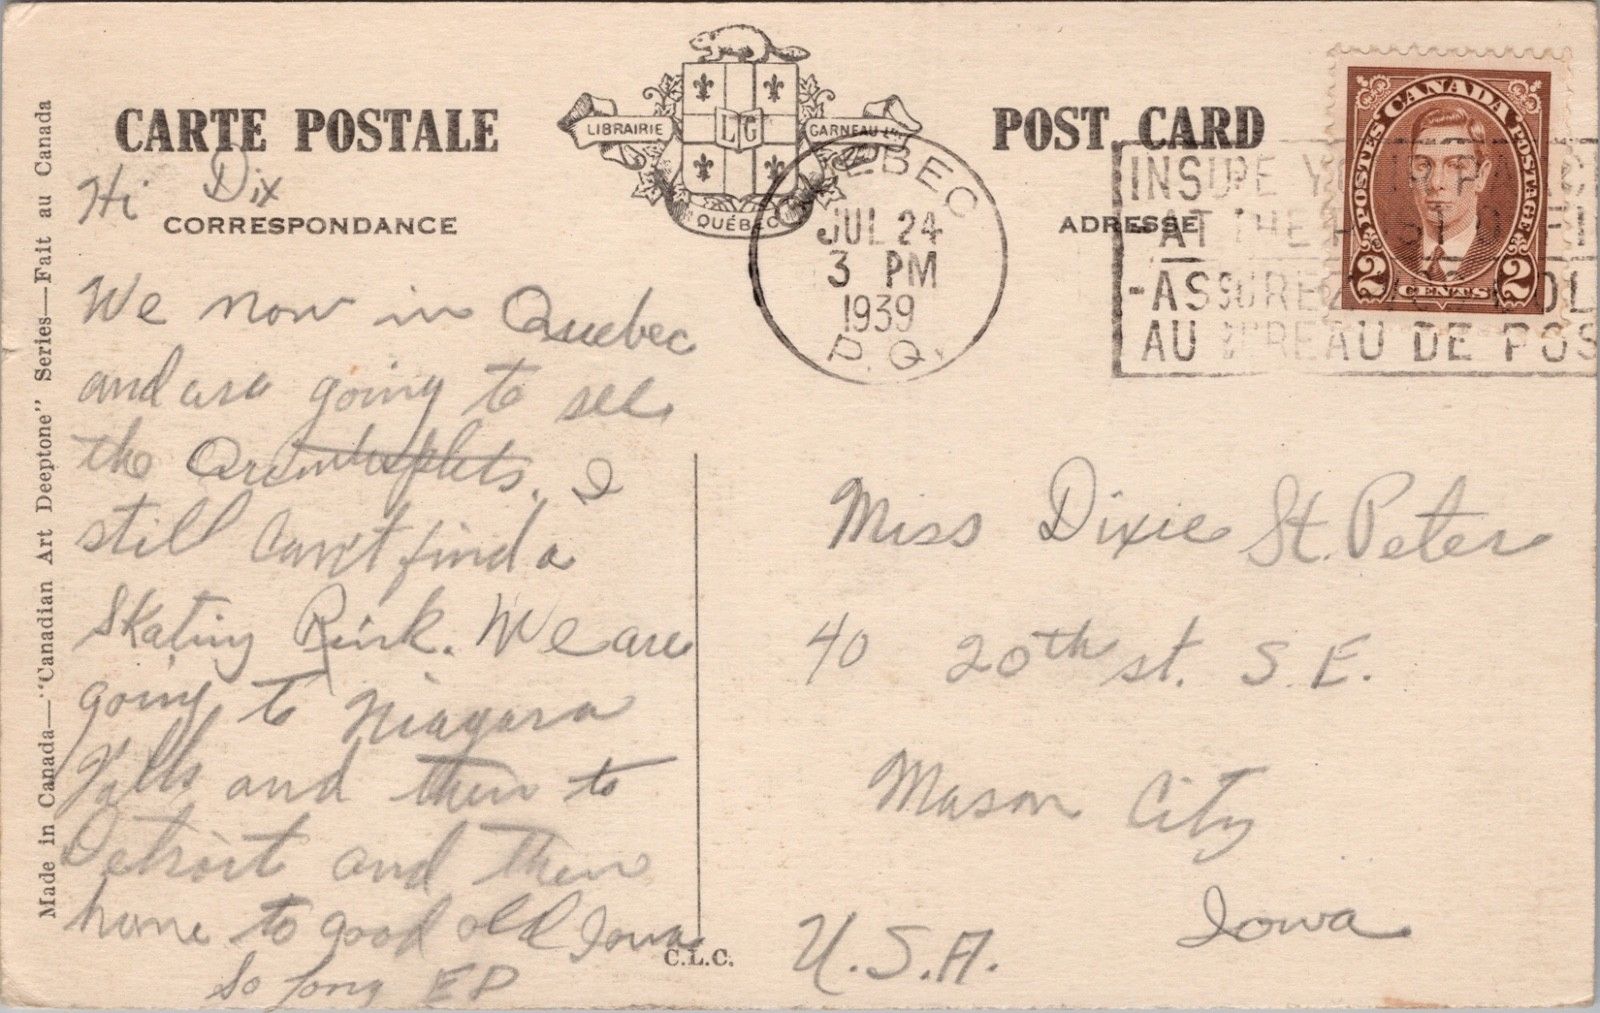 CARTE POSTALE
POST CARD
LIBRAIRIE
LG
GARNEAU Ltée
QUÉBEC
CORRESPONDANCE
ADRESSE
Made in Canada—"Canadian Art Deeptone" Series—Fait au Canada
QUEBEC
JUL 24
3 PM
1939
P.Q.
INSURE YOUR PARC
AT THE POST OFFI
-ASSUREZ VOS COL
AU BUREAU DE POS
CANADA
POSTES POSTAGE
2 CENTS 2
Hi Dix
We now in Quebec
and are going to see
the Quintuplets. I
still can't find a
Skating Rink. We are
going to Niagara
Falls and then to
Detroit and then
home to good old Iowa
So long ED
C.L.C.
Miss Dixie St. Peter
40 20th st. S.E.
Mason City
Iowa
U.S.A.